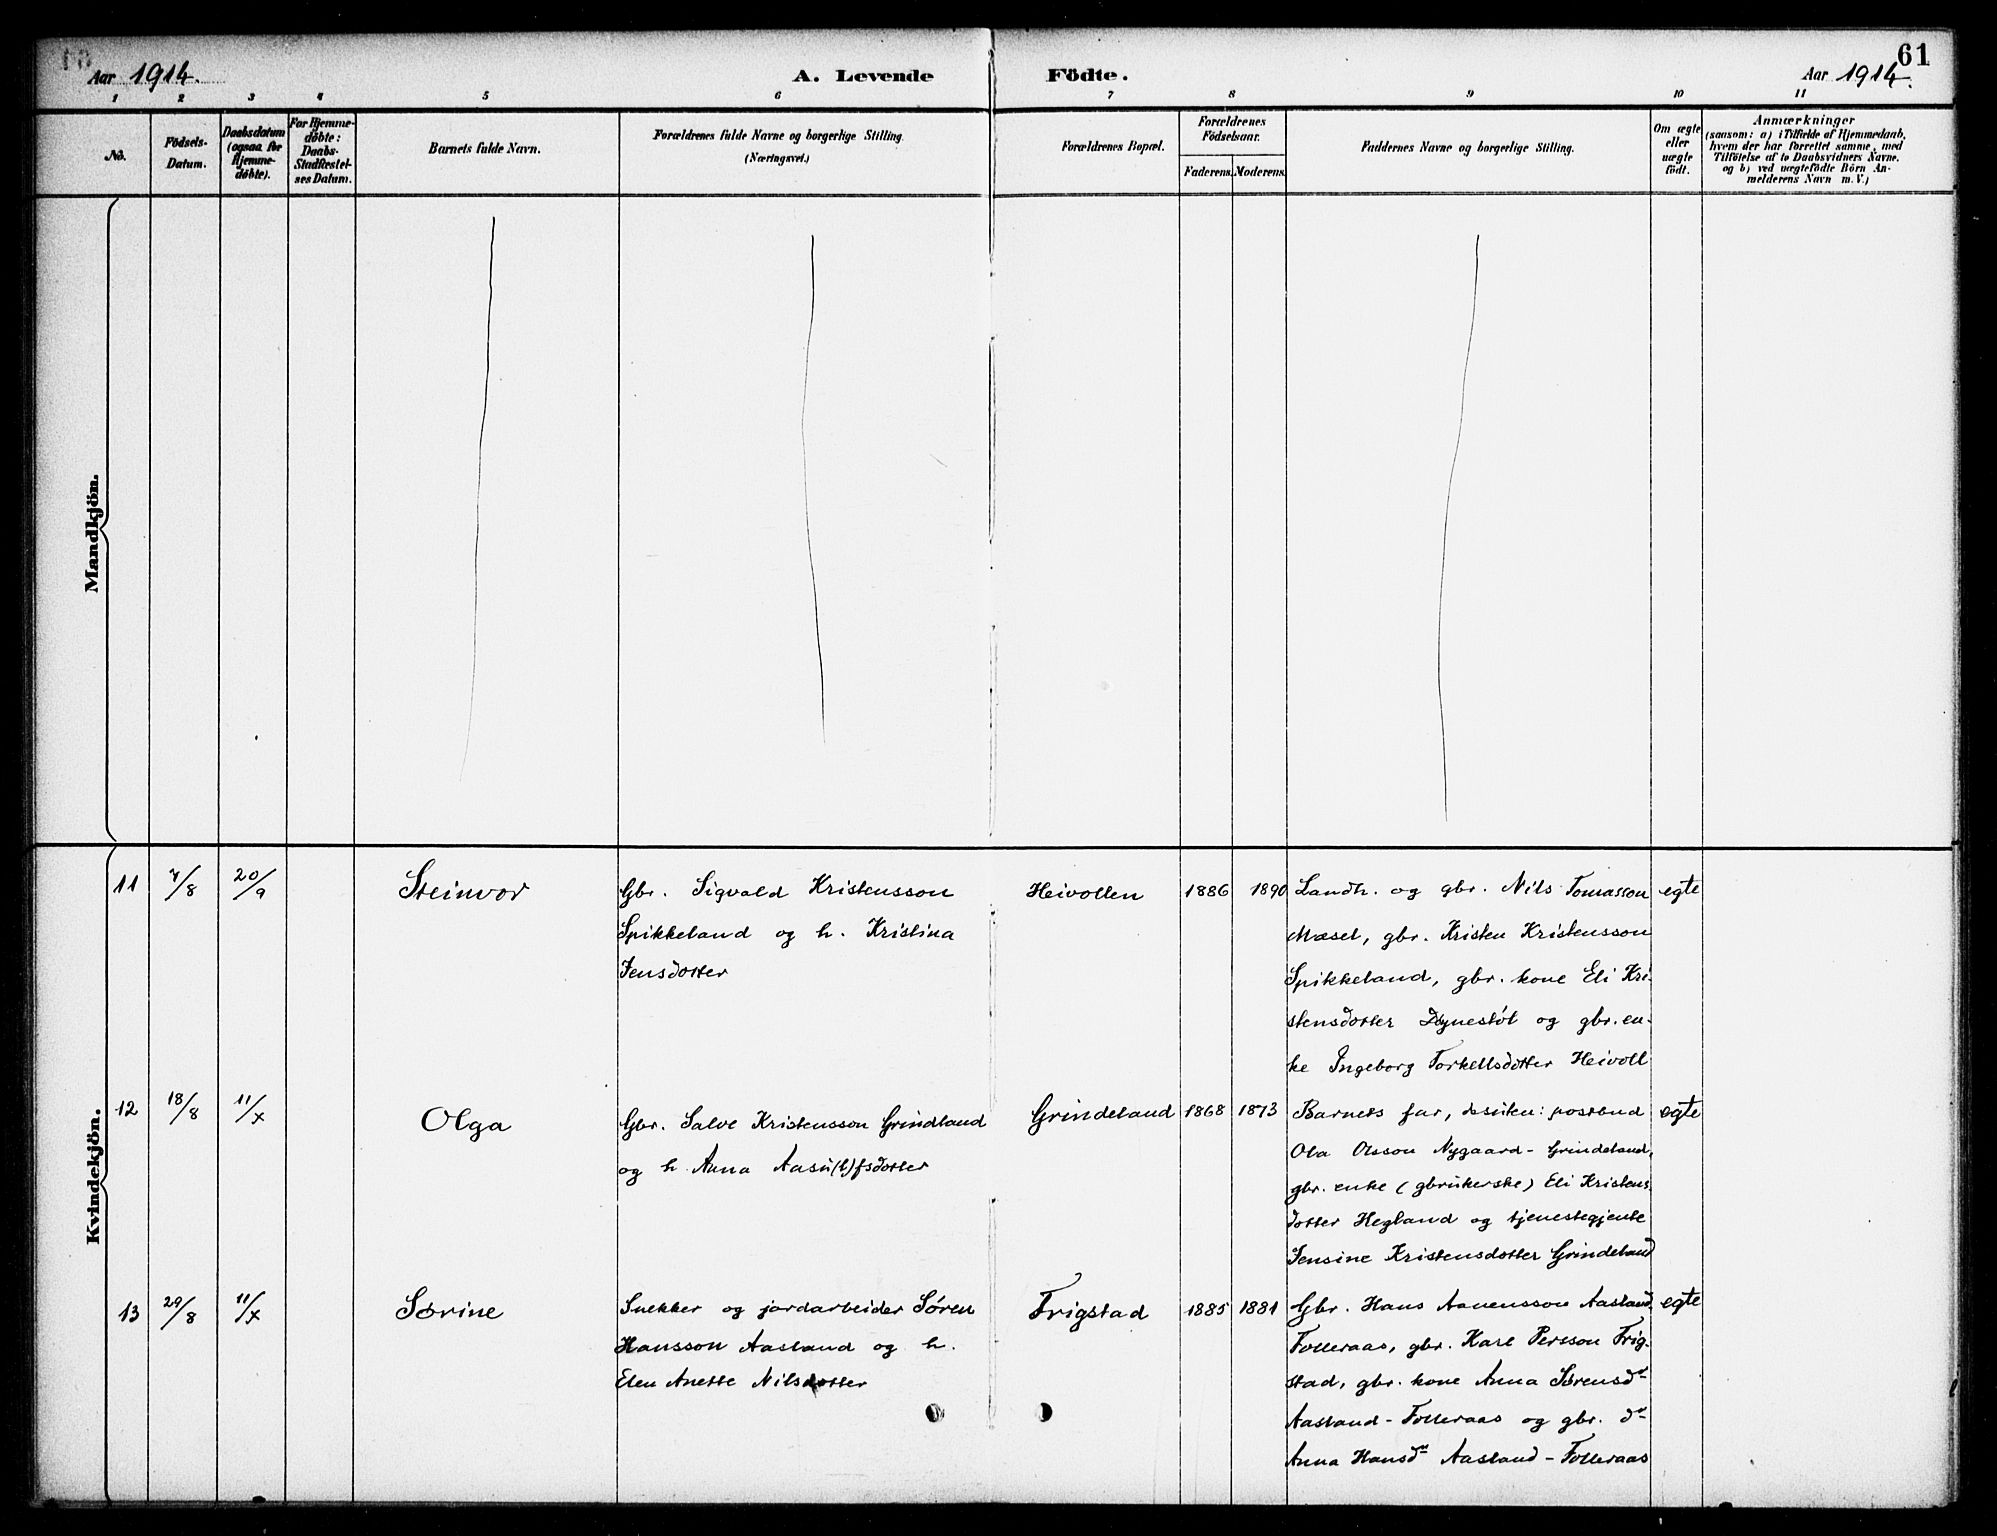 61
Aar 1914.
A. Levende Födte.
Aar 1914.
1 2 3 4 5 6 7 8 9 10 11
No.
Födsels-
Datum.
Daabsdatum
(ogsaa for
Hjemme-
döbte).
For Hjemme-
döbte:
Daabs-
Stadfæstel-
ses Datum.
Barnets fulde Navn.
Forældrenes fulde Navne og borgerlige Stilling.
(Næringsvei.)
Forældrenes Bopæl.
Forældrenes
Födselsaar.
Faderens. Moderens.
Faddernes Navne og borgerlige Stilling.
Om ægte
eller
uægte
født.
Anmærkninger
(saasom: a) i Tilfælde af Hjemmedaab,
hvem der har forrettet samme, med
Tilföielse af to Daabsvidners Navne.
og b) ved uægtefödte Börn An-
melderens Navn m. V.)
Mandkjön.
Kvindekjön.
11
7/8
20/9
Steinvor
Gbr. Sigvald Kristensson
Spikkeland og h. Kristina
Jensdotter
Heivollen
1886
1890
Landh. og gbr. Nils Tomasson
Mæsel, gbr. Kristen Kristensson
Spikkeland, gbr. kone Eli Kri-
stensdotter Dynestøl og gbr. en-
ke Ingeborg Torkellsdotter Heivoll
egte
12
18/8
11/X
Olga
Gbr. Salve Kristensson Grindland
og h. Anna Aasu(l)fsdotter
Grindeland
1868
1873
Barnets far, desuten: postbud
Ola Olsson Nygaard-Grindeland,
gbr. enke (gbrukerske) Eli Kristens-
dotter Hegland og tjenestegjente
Jensine Kristensdotter Grindeland
egte
13
29/8
11/X
Sørine
Snekker og jordarbeider Søren
Hansson Aasland og h.
Elen Anette Nilsdotter
Frigstad
1885
1881
Gbr. Hans Aanensson Aasland-
Folleraas, gbr. Karl Persson Frig-
stad, gbr. kone Anna Sørensdr
Aasland-Folleraas og gbr. dr
Anna Hansdr Aasland-Folleraas
egte